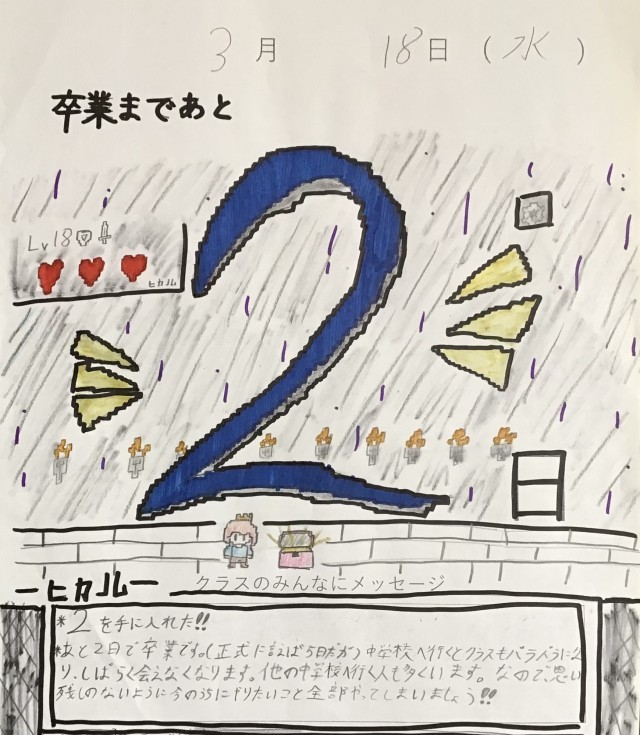 3月 18日 (水)
卒業まであと
2
Lv18
ヒカル
日
ーヒカルー
クラスのみんなにメッセージ
*2を手に入れた!!
*あと2日で卒業です。(正式に言えば5日だが)中学校へ行くとクラスもバラバラにな
り、しばらく会えなくなります。他の中学校へ行く人も多くいます。なので、思い
残しのないように今のうちにやりたいこと全部やってしまいましょう!!